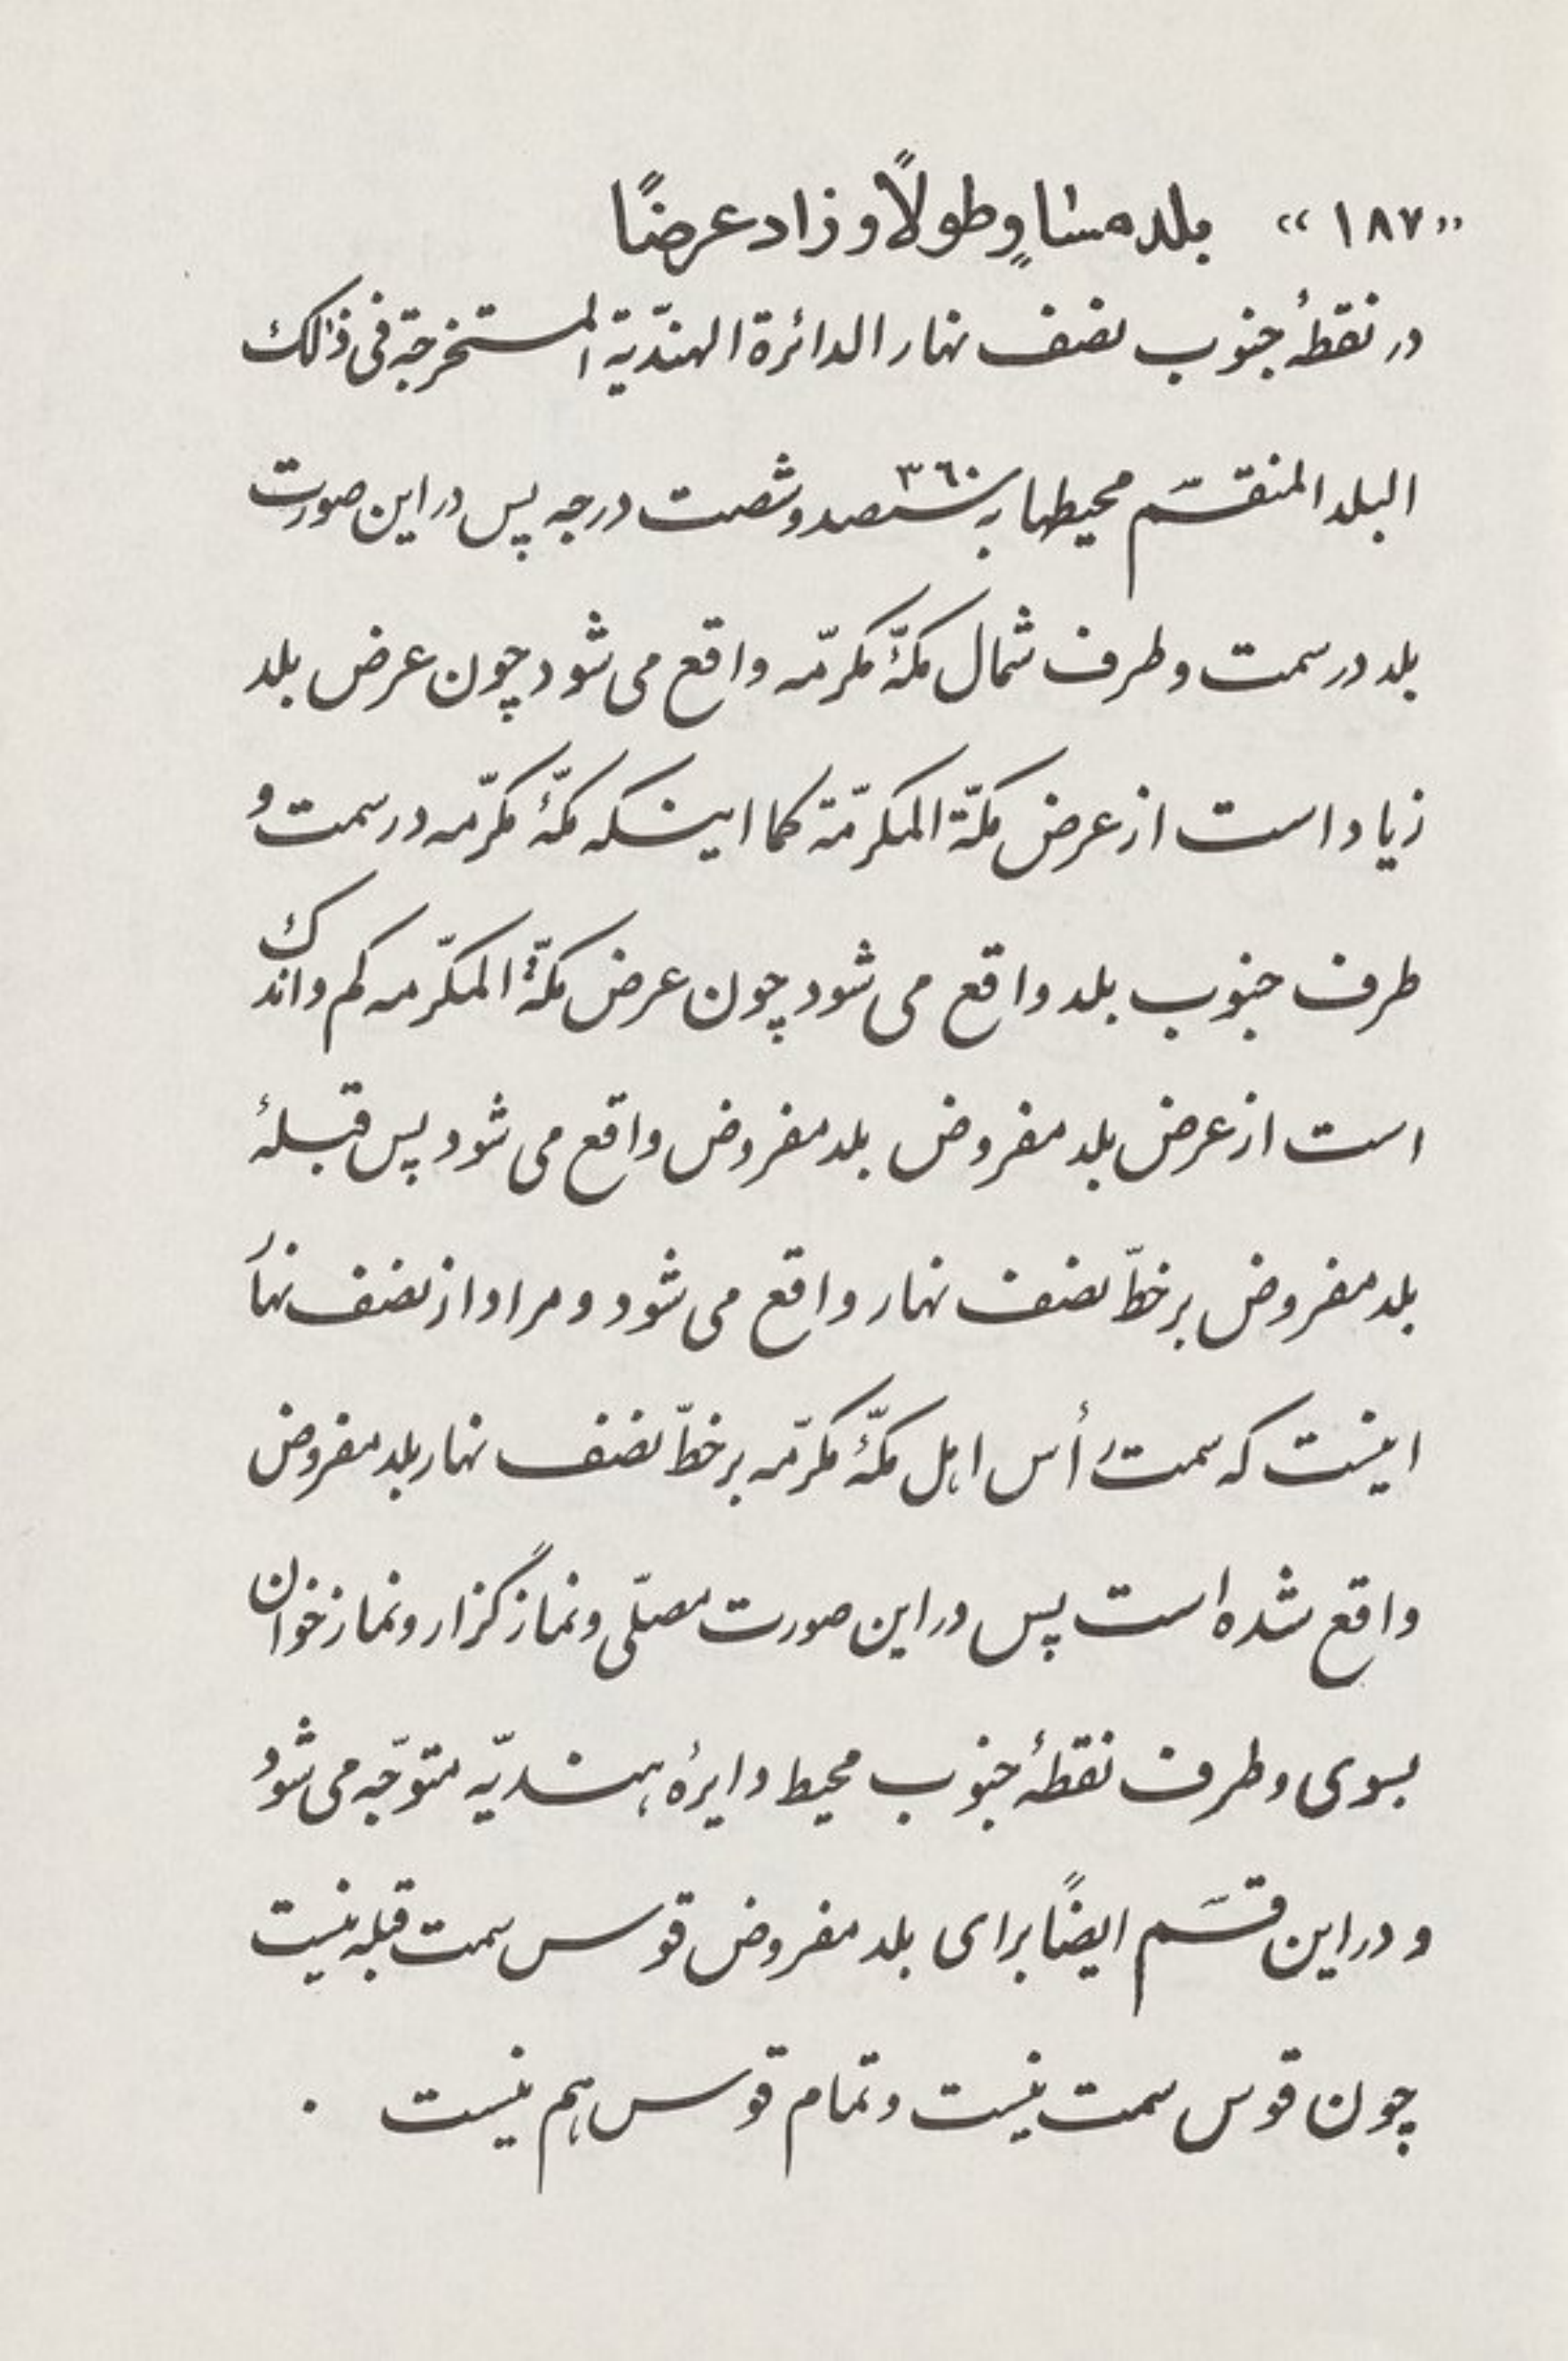 «١٨٧» بلده مساوٍ طولاً و زاد عرضًا
در نقطهٔ جنوب نصف نهار الدائرة الهندّیة المستخرجة فی ذالک
البلد المنقسّم محیطها به ٣٦٠ سیصد و شصت درجه پس در این صورت
بلد در سمت و طرف شمال مکّهٔ مکرّمه واقع می شود چون عرض بلد
زیاد است از عرض مکّة المکرّمة کما اینکه مکّهٔ مکرّمه در سمت و
طرف جنوب بلد واقع می شود چون عرض مکّة المکرّمه کم و اندک
است از عرض بلد مفروض بلد مفروض واقع می شود پس قبلهٔ
بلد مفروض بر خطّ نصف نهار واقع می شود و مراد از نصف نهار
اینست که سمت رأس اهل مکّهٔ مکرّمه بر خطّ نصف نهار بلد مفروض
واقع شده است پس در این صورت مصلّی و نماز گزار و نماز خوان
بسوی و طرف نقطهٔ جنوب محیط دایرهٔ هندیّه متوجّه می شود
و در این قسَم ایضًا برای بلد مفروض قوس سمت قبله نیست
چون قوس سمت نیست و تمام قوس هم نیست .